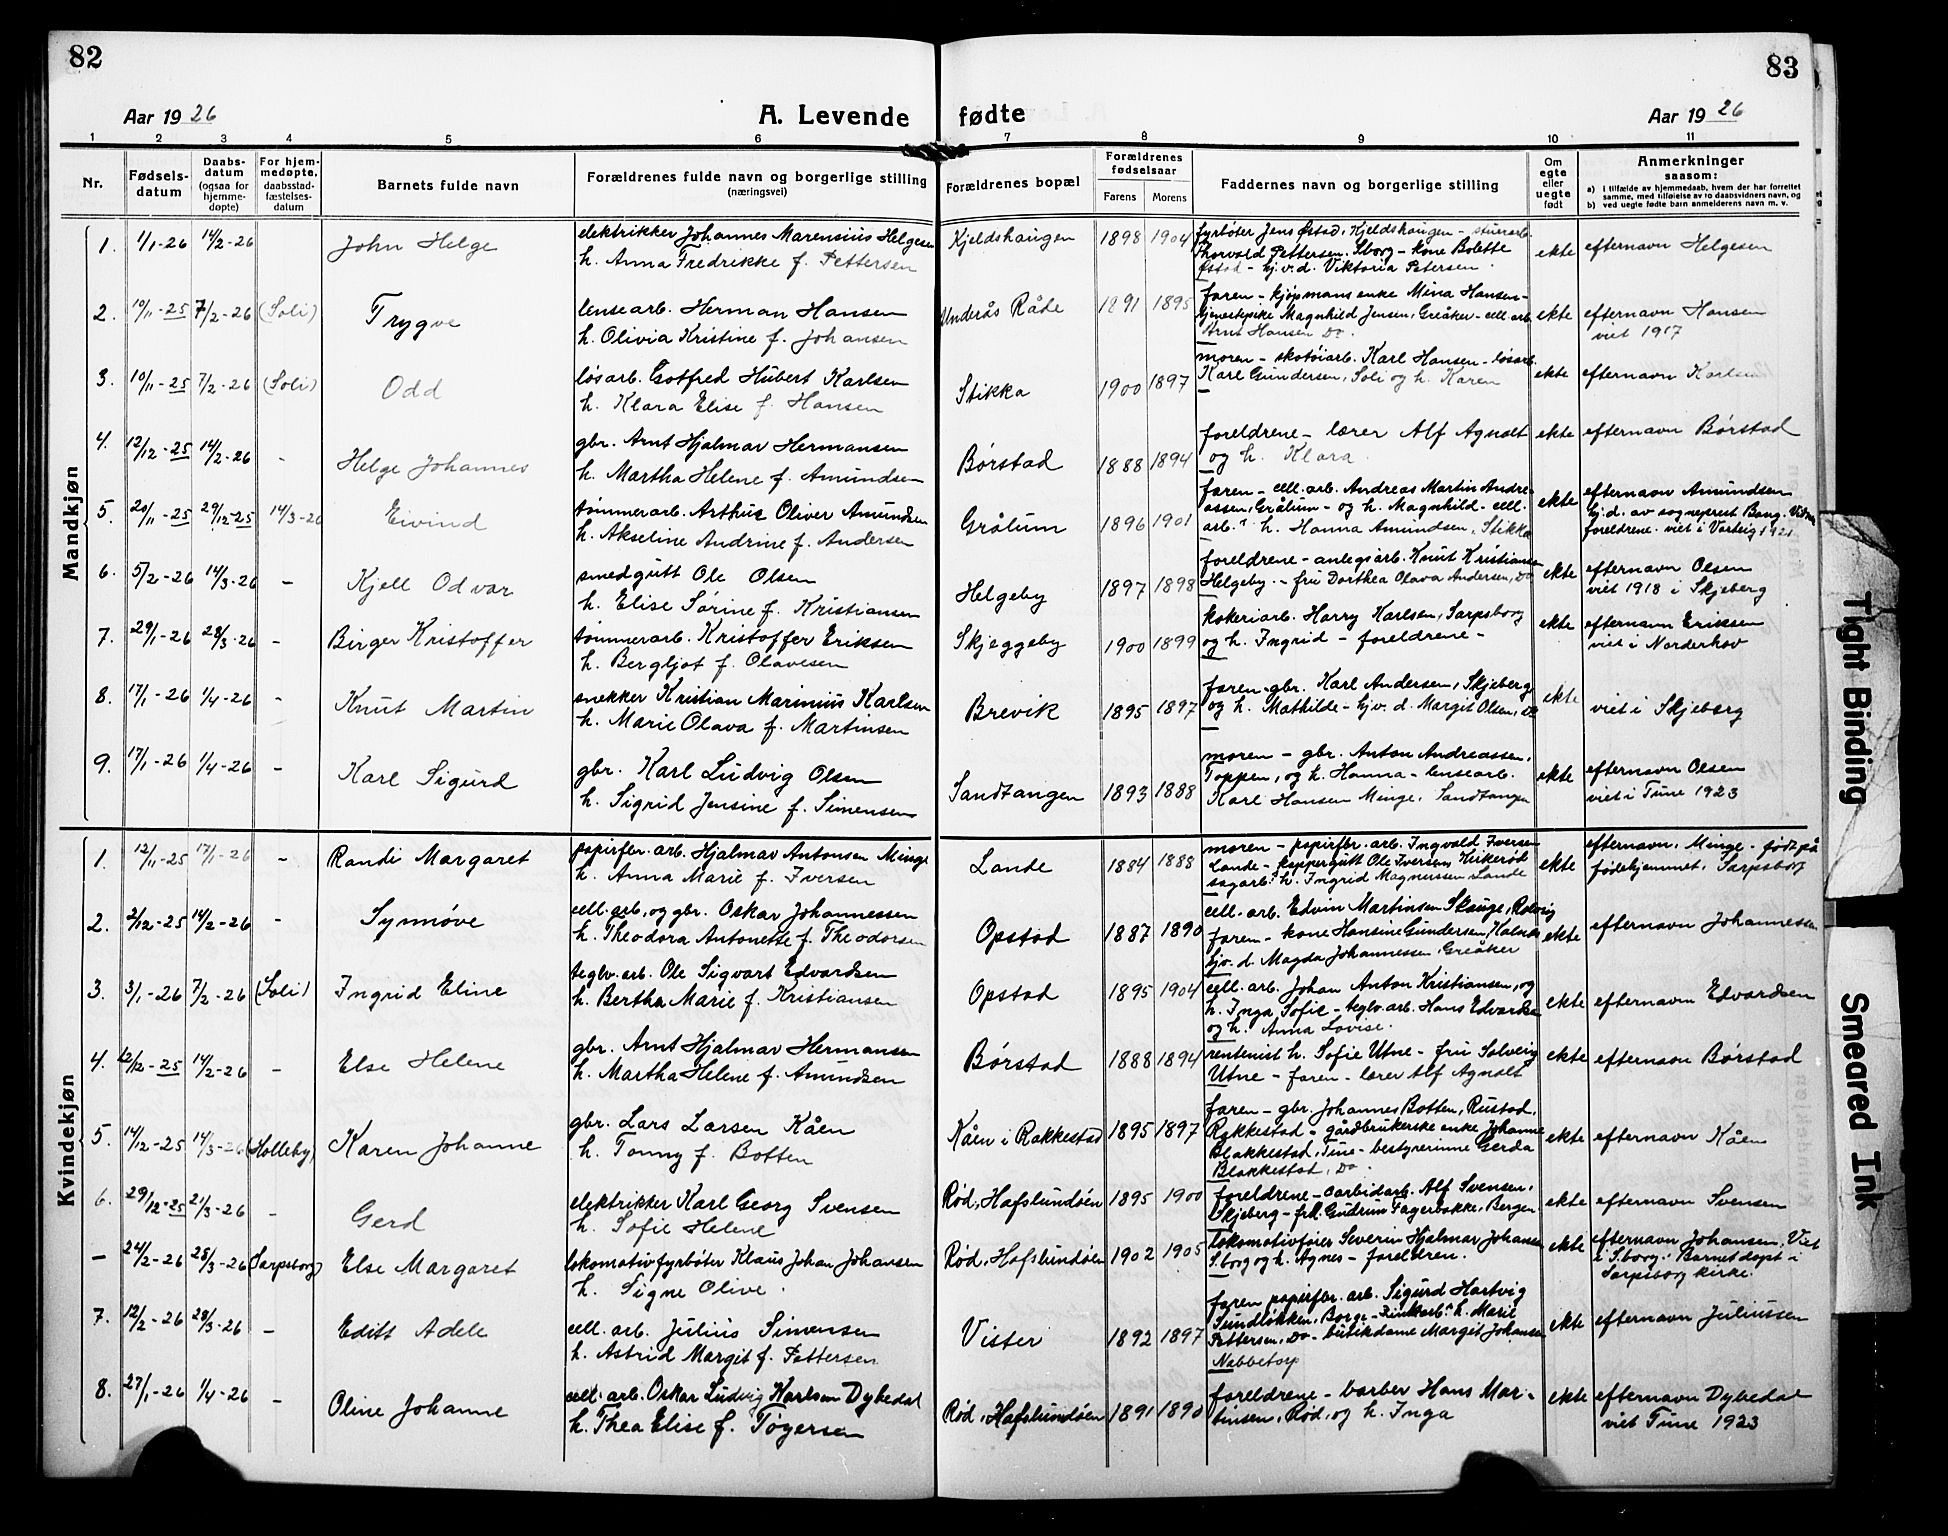 82
83
Aar 19 26
A. Levende fødte
Aar 19 26
1 2 3 4 5 6 7 8 9 10 11
Nr.
Fødsels-
datum
Daabs-
datum
(ogsaa for
hjemme-
døpte)
For hjem-
medøpte,
daabsstad-
fæstelses-
datum
Barnets fulde navn
Forældrenes fulde navn og borgerlige stilling
(næringsvei)
Forældrenes bopæl
Forældrenes
fødselsaar
Farens Morens
Faddernes navn og borgerlige stilling
Om
egte
eller
uegte
født
Anmerkninger
saasom:
a) i tilfælde av hjemmedaab, hvem der har forrettet
samme, med tilføielse av to daabsvidners navn, og
b) ved uegte fødte barn anmelderens navn m. v.
Mandkjøn
1. 1/1-26 14/2-26 John Helge
elektrikker Johannes Marensius Helgesen
h. Anna Fredrikke f. Pettersen
Kjeldshaugen 1898 1904
fyrbøter Jens Østad, Kjeldshaugen -
Thorvald Pettersen, Sborg - kone Bolette
Østad - hj.v.d. Viktoria Petersen.
ekte efternavn Helgesen
2. 10/11-25 7/2-26 (Soli) Trygve
lensearb. Herman Hansen
h. Olivia Kristine f. Johansen
Underås Råde 1891 1895
faren - kjøpmans enke Mina Hansen -
tjenestepike Magnhild Jensen, Greåker - cell. arb.
Arnt Hansen Do.
ekte efternavn Hansen
viet 1917
3. 10/11-25 7/2-26 (Soli) Odd
løsarb. Gotfred Hubert Karlsen
h. Klara Elise f. Hansen
Stikka 1900 1897
moren - skotøiarb. Karl Hansen - løsarb.
Karl Gundersen, Soli og h. Karen
ekte efternavn Karlsen
4. 12/12-25 14/2-26 - Helge Johannes
gbr. Arnt Hjalmar Hermansen
h. Martha Helene f. Amundsen
Børstad 1888 1894
foreldrene - lærer Alf Agnalt
og h. Klara.
ekte efternavn Børstad
5. 20/11-25 29/12-25 14/3-26 Eivind
tømmerarb. Arthur Oliver Amundsen
h. Akseline Andrine f. Andersen
Grålum 1896 1901
faren - cell. arb. Andreas Martin Andre-
assen, Grålum - og h. Magnhild - cell.
arb. h. Hanna Amundsen, Stikka
ekte efternavn Amundsen
hj.d. av sogneprest Bang.
foreldrene. viet i Varteig 1921.
6. 5/2-26 14/3-26 - Kjell Odvar
smedgutt Ole Olsen
h. Elise Sørine f. Kristiansen
Helgeby 1897 1898
foreldrene - anlegsarb. Knut Kristiansen
Helgeby. - fru Dorthea Olava Andersen, Do
ekte efternavn Olsen
viet 1918 i Skjeberg
7. 29/1-26 28/3-26 - Birger Kristoffer
tømmerarb. Kristoffer Eriksen
h. Bergljot f. Olavesen
Skjeggeby 1900 1899
kokeriarb. Harry Karlsen, Sarpsborg
og h. Ingrid - foreldrene -
ekte efternavn Eriksen
viet i Norderhov
8. 17/1-26 1/4-26 - Knut Martin
snekker Kristian Marinius Karlsen
h. Marie Olava f. Martinsen
Brevik 1895 1897
faren gbr. Karl Andersen, Skjeberg
og h. Mathilde - hj.v.d. Margit Olsen, Do
ekte viet i Skjeberg
9. 17/1-26 1/4-26 - Karl Sigurd
gbr. Karl Ludvig Olsen
h. Sigrid Jensine f. Simensen
Sandtangen 1893 1888
moren - gbr. Anton Andreassen,
Toppen, og h. Hanna - lensearb.
Karl Hansen Minge, Sandtangen
ekte efternavn Olsen
viet i Tune 1923
Kvindekjøn
1. 12/11-25 17/1-26 - Randi Margaret
papirfbr. arb. Hjalmar Antonsen Minge
h. Anna Marie f. Iversen
Lande 1884 1888
moren - papirfbr. arb. Ingvald Iversen
Lande - Ole Iversen,
sagarb. h. Ingrid Magnussen Lande
ekte efternavn, Minge - født på
fødehjemmet, Sarpsborg
2. 2/12-25 14/2-26 - Synnøve
cell. arb. og gbr. Oskar Johannessen
h. Theodora Antonette f. Theodorsen
Opstad 1887 1890
cell. arb. Edvin Martinsen Skauge, Rolvsøy
faren - kone Hansine Gundersen,
hjv. d. Magda Johannessen, Greåker
ekte efternavn Johannessen
3. 3/1-26 7/2-26 (Soli) Ingrid Eline
teglv. arb. Ole Sigvart Edvardsen
h. Bertha Marie f. Kristiansen
Opstad 1895 1904
cell. arb. Johan Anton Kristiansen, og
h. Inga Sofie - teglv. arb. Hans Edvardsen
og h. Anna Lovise.
ekte efternavn Edvardsen
4. 12/12-25 14/2-26 - Else Helene
gbr. Arnt Hjalmar Hermansen
h. Martha Helene f. Amundsen
Børstad 1888 1894
rentenist h. Sofie Utne - fru Solveig
Utne - faren - lærer Alf Agnalt
ekte efternavn Børstad
5. 14/12-25 14/3-26 (Holleby) Karen Johanne
gbr. Lars Larsen Kåen
h. Tonny f. Botten
Kåen i Rakkestad 1895 1897
faren - gbr. Johannes Botten, Rustad,
Rakkestad - gårdbrukerske enke Johanne
Blakkestad, Tune - bestyrerinne Gerda
Blakkestad, Do.
ekte efternavn Kåen
6. 29/12-25 21/3-26 - Gerd
elektrikker Karl Georg Svensen
h. Sofie Helene
Rød, Hafslundsøen 1895 1900
foreldrene - carbidarb. Alf Svensen,
Skjeberg - frk. Gudrun Fagerbakke, Bergen
ekte efternavn Svensen
- 24/2-26 28/3-26 (Sarpsborg) Else Margaret
lokomotivfyrbøter Klaus Johan Johansen
h. Signe Olive.
Rød, Hafslundsøen 1902 1905
lokomotivfører Severin Hjalmar Johansen
S.borg og h. Agnes - foreldren.
ekte efternavn Johansen, Viet
i S.borg. Barnet døpt i
Sarpsborg kirke.
7. 12/2-26 28/3-26 - Editt Adele
cell. arb. Julius Simensen
h. Astrid Margit f. Pettersen
Vister 1892 1897
faren papirfbr. arb. Sigurd Hartvig
Sundløkken, Borge - h. Marie
Pettersen, Do - butikdame Margit Johansen
Nabbetorp
ekte efternavn Juliussen
8. 27/1-26 1/4-26 - Oline Johanne
cell. arb. Oskar Ludvig Karlsen Dybedal
h. Thea Elise f. Tøgersen
Rød, Hafslundsøen 1891 1890
foreldrene - barber Hans Mar-
tinsen, Rød, og h. Inga
ekte efternavn Dybedal
viet Tune 1923
Tight Binding
Smeared Ink